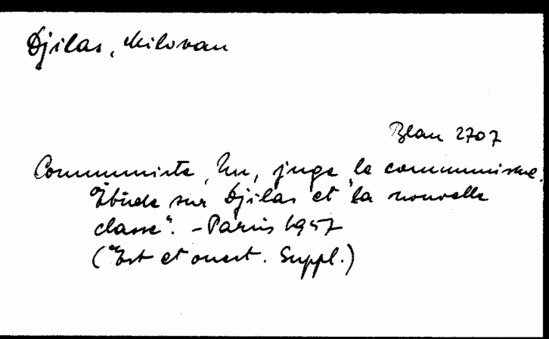 Djilas, Milovan
Blau 2707
Communiste, Un, juge le communisme.
Étude sur Djilas et "la nouvelle
classe". - Paris 1957
("Est et ouest. Suppl.)